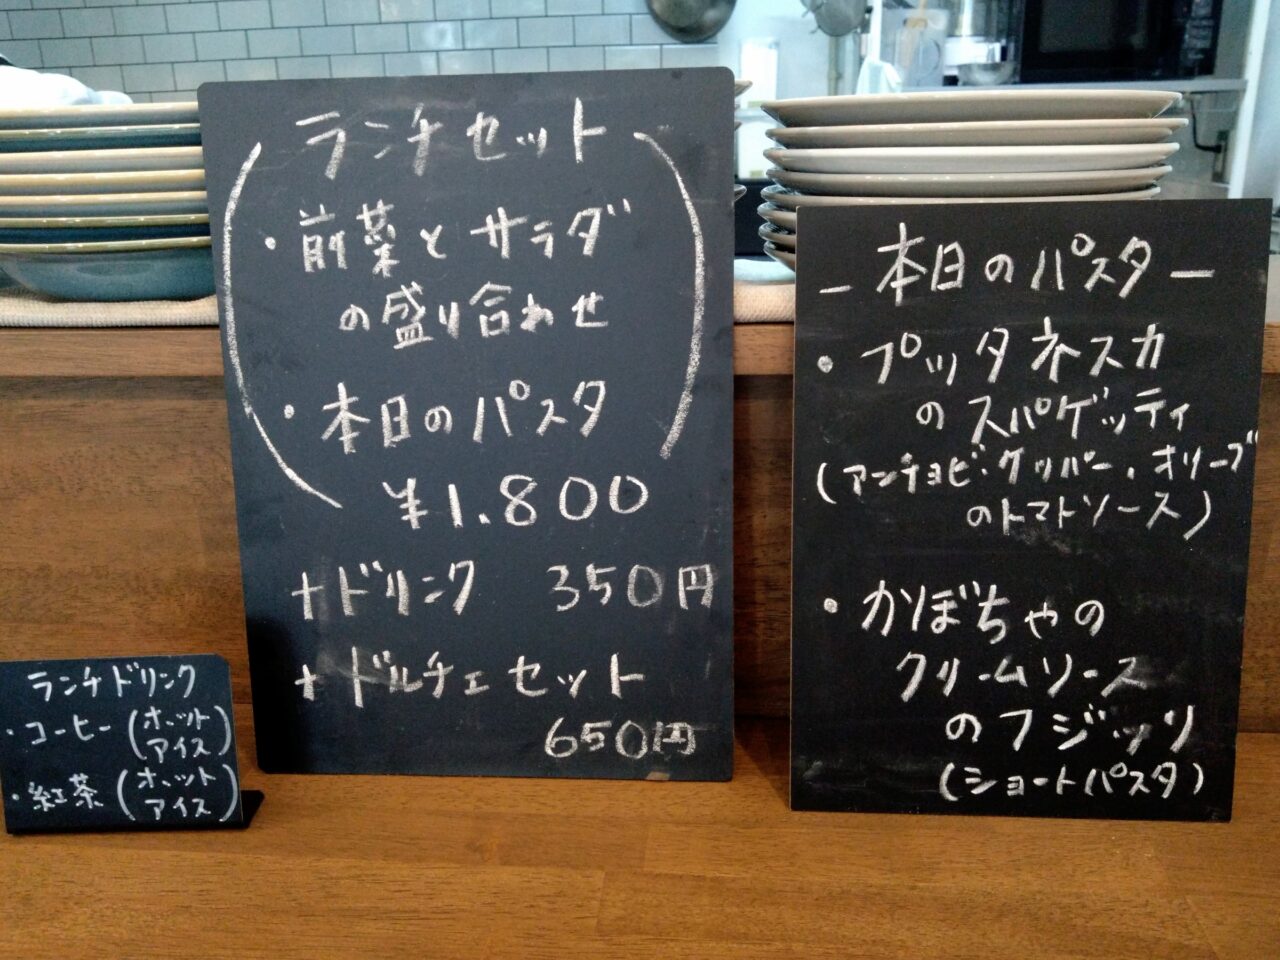 ランチセット
・前菜とサラダ
の盛り合わせ
・本日のパスタ
¥1.800
+ドリンク 350円
+ドルチェセット
650円
ー本日のパスター
・プッタネスカ
のスパゲッティ
(アンチョビ・ケッパー・オリーブ
のトマトソース)
・かぼちゃの
クリームソース
のフジッリ
(ショートパスタ)
ランチドリンク
・コーヒー(ホット
アイス)
・紅茶(ホット
アイス)